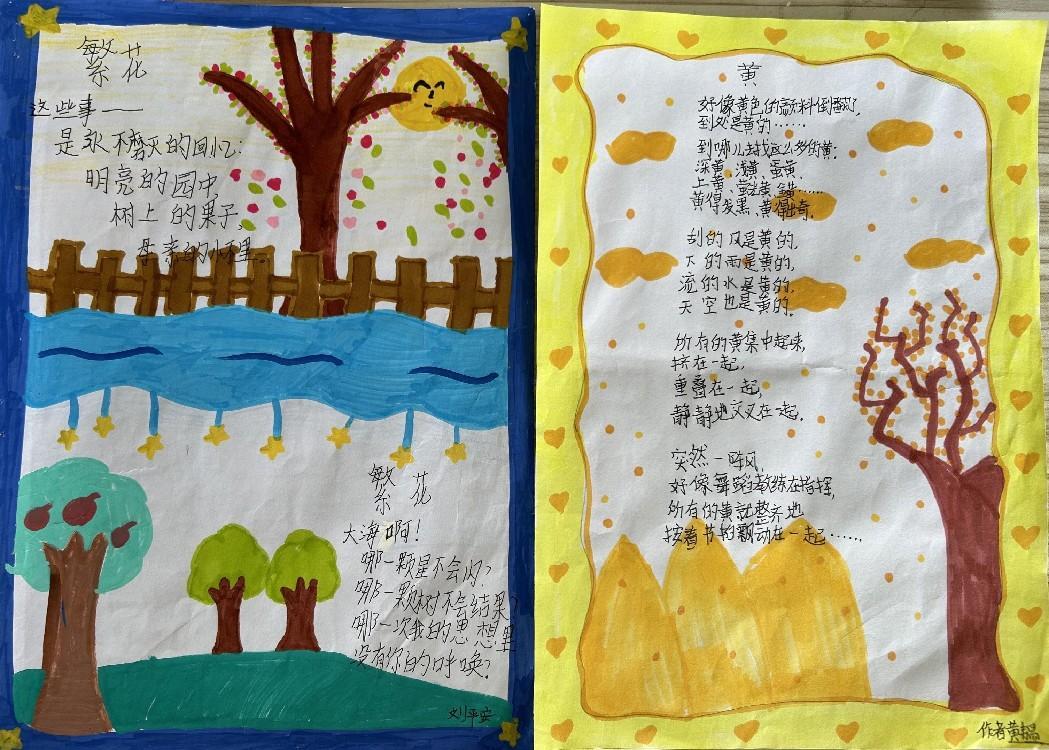 繁花
这些事——
是永不磨灭的回忆：
明亮的园中
树上的果子，
母亲的怀里。
繁花
大海啊！
哪一颗星不会闪？
哪一颗树不会结果？
哪一次我的思想里
没有你的呼唤？
刘平安
黄
好像黄色的颜料倒翻了，
到处是黄的……
到哪儿去找这么多的黄：
深黄、浅黄、蛋黄、
土黄、金黄……
黄得发黑、黄得出奇。
刮的风是黄的，
下的雨是黄的，
流的水是黄的，
天空也是黄的。
所有的黄集中起来，
挤在一起，
重叠在一起，
静静地交叉在一起。
突然一阵风，
好像舞蹈教练在指挥，
所有的黄就整齐地
按着节拍飘动在一起……
作者黄韫